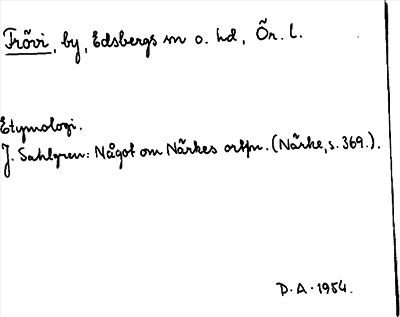 Frövi, by, Edsbergs sn o. hd, Ör. l.
Etymologi.
J. Sahlgren: Något om Närkes ortpn. (Närke, s. 369.).
D. A. 1954.